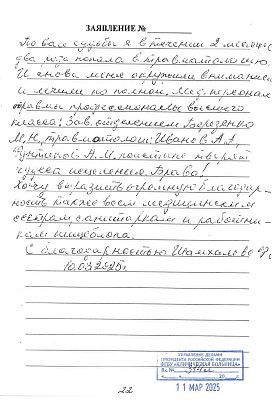 ЗАЯВЛЕНИЕ №
По воле судьбы я в течении 2 месяцев
два раза попала в травматологию.
И снова меня окружили вниманием
и лечили по полной. Мед. персонал
травмы профессионалы высшего
класса: Зав. отделением Бороденко
М.Н, травматологи: Иванов А.А,
А.М, поистине творят
чудеса исцеления. Браво!
Хочу выразить огромную благодар-
ность также всем медицинским
сестрам, санитаркам и работни-
кам пищеблока.
С благодарностью
10.03.2025г
УПРАВЛЕНИЕ ДЕЛАМИ
ПРЕЗИДЕНТА РОССИЙСКОЙ ФЕДЕРАЦИИ
ФГБУ «КЛИНИЧЕСКАЯ БОЛЬНИЦА»
Вх. №
11 МАР 2025
22